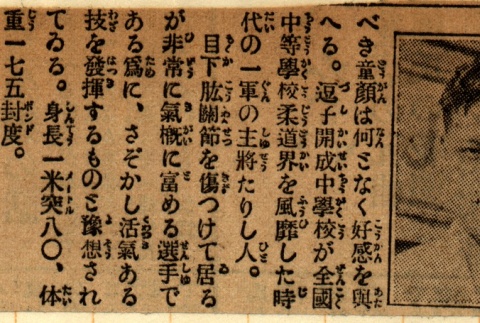 べき童顔は何となく好感を與
へる。逗子開成中學校が全國
中等學校柔道界を風靡した時
代の一軍の主將たりし人。
目下肱關節を傷つけて居る
が非常に氣概に富める選手で
ある爲に、さぞかし活氣ある
技を發揮するものと豫想され
てゐる。身長一米突八〇、体
重一七五封度。